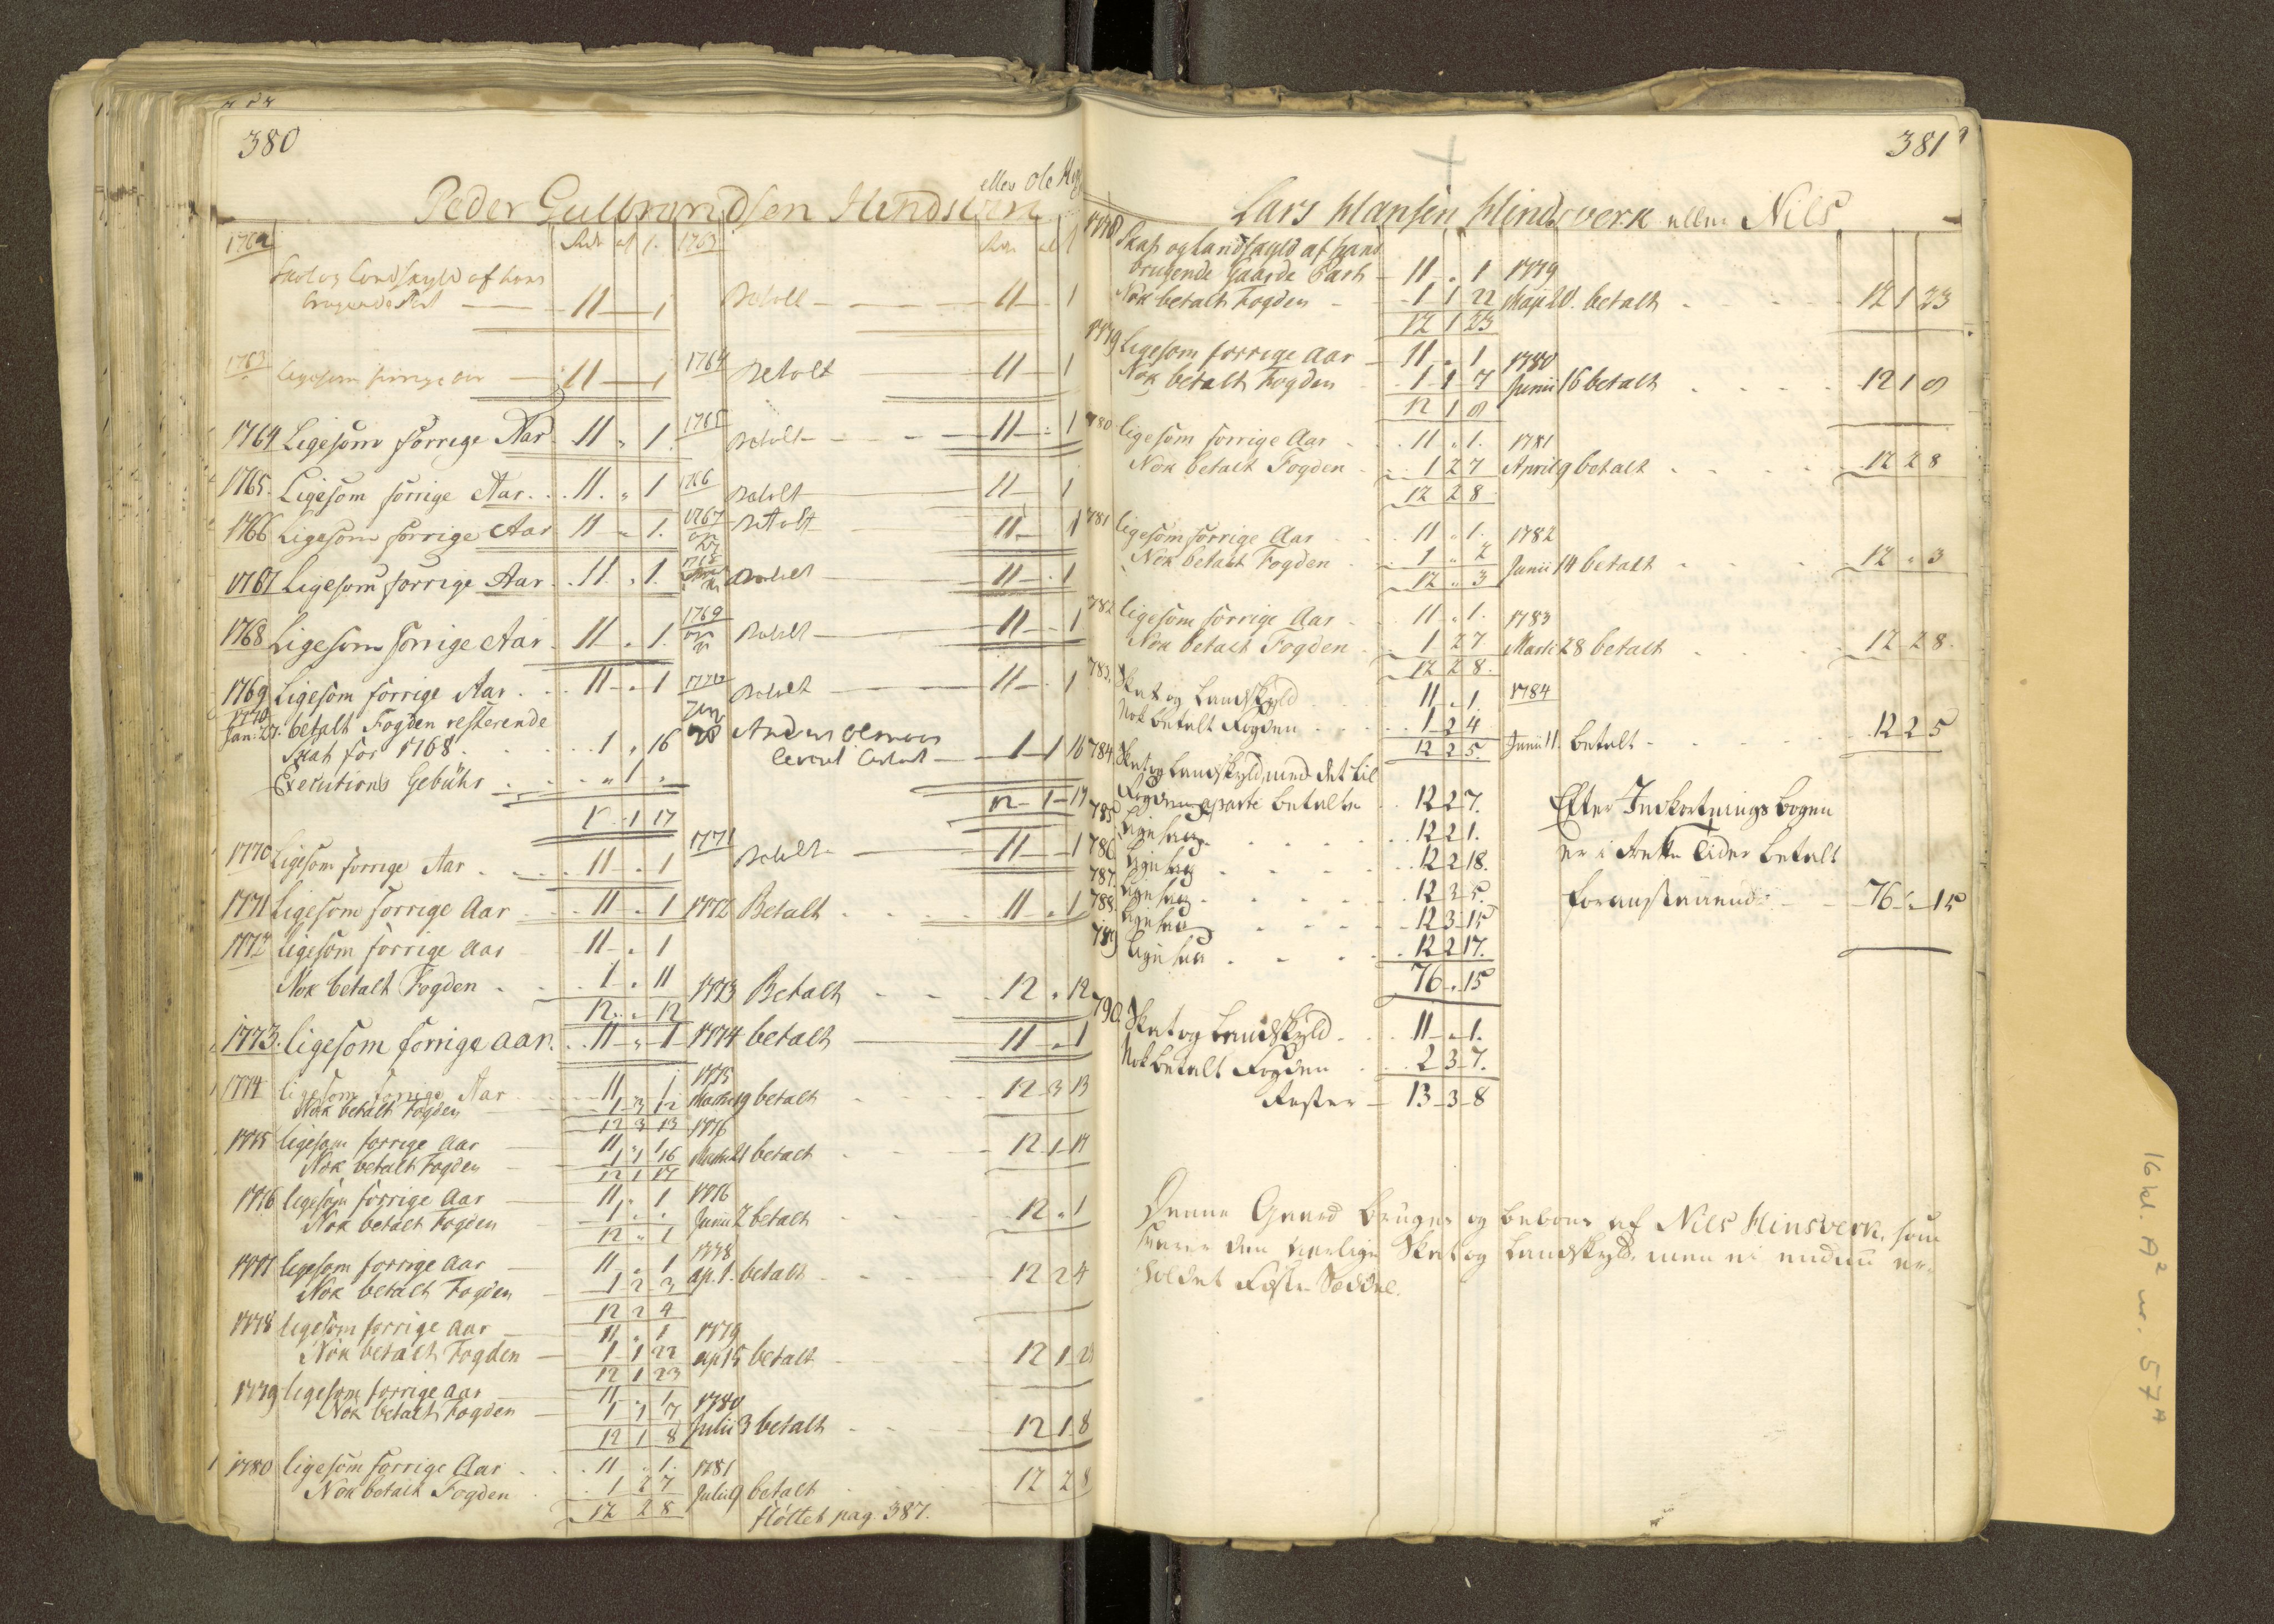 380
eller Ole
Peder Gulbrandsen Hindsverk
1762 Rdr 1763 Rdr
Skat og Landskyld af hans
brugende Part 11 — 1 Betalt 11 — 1
1763 Ligesom forrige Aar 11 — 1 1764 Betalt 11 — 1
1764 Ligesom forrige Aar 11 " 1. 1765 Betalt 11 — 1
1765. Ligesom forrige Aar 11. " 1 1766 Betalt 11 — 1
1766 Ligesom forrige Aar 11 " 1. 1767 Betalt 11 — 1
1767 Ligesom forrige Aar 11. " 1. 1768 Betalt 11 — 1
1768 Ligesom forrige Aar 11 " 1. 1769 Betalt 11 — 1
1769 Ligesom forrige Aar 11 " 1 1770 Betalt 11 — 1
1770 Jan: 27. betalt Fogden resterende
Skat for 1768 1 " 16 Anders 1 — 1 16
Executions Gebühr " 1 "
1 1 17 12 — 1 — 17
1770 Ligesom forrige Aar 11 " 1 1771 Betalt 11 — 1
1771 Ligesom forrige Aar 11 " 1 1772 Betalt 11 " 1
1772 Ligesom forrige Aar 11 " 1
Nok betalt Fogden 1 " 11 1773 Betalt 12 " 12
12 " 12
1773. ligesom forrige aar. 11 " 1 1774 betalt 11 " 1
1774 ligesom forrige Aar 11 " 1 1775
Nok betalt Fogden 1 3 12 Martii 19 betalt 12 3 13
12 3 13
1775 ligesom forrige aar 11 " 1 1776
Nok betalt Fogden 1 1 16 Martii 21 betalt 12 1 17
12 1 17
1776 ligesom forrige aar 11 " 1 1776
Nok betalt Fogden 1 " " Junii 2 betalt 12 " 1
12 " 1
1777 ligesom forrige aar 11 " 1 1778
Nok betalt Fogden 1 2 3 ap. 1. betalt 12 2 4
12 2 4
1778 ligesom forrige aar 11 " 1 1779
Nok betalt Fogden 1 1 22 ap 15 betalt 12 1 23
12 1 23
1779 ligesom forrige aar 11 " 1 1780
Nok betalt Fogden 1 1 7 Julii 3 betalt 12 1 8
12 1 8
1780 ligesom forrige Aar 11 " 1. 1781
Nok betalt Fogden 1 2 7 Julii 9 betalt 12 2 8
12 2 8 fløttet pag. 387.
381
Lars Hansen Hindsverk eller Nils
1778 Skat og Landskyld af hans
brugende Gaarde Part 11 " 1 1779
Nok betalt Fogden 1 1 22 Maji betalt 12 1 23
12 1 23
1779 Ligesom forrige aar 11 " 1 1780
Nok betalt Fogden 1 1 7 Junii 16 betalt 12 1 8
12 1 8
780 ligesom forrige Aar 11 " 1. 1781
Nok betalt Fogden 1 2 7 April 9 betalt 12 2 8
12 2 8
781 ligesom forrige Aar 11 " 1. 1782
Nok betalt Fogden 1 " 2 Junii 14 betalt 12 " 3
12 " 3
782 ligesom forrige Aar 11 " 1. 1783
Nok betalt Fogden 1 2 7 Martii 28 betalt 12 2 8.
12 2 8.
783. Skat og Landskyld 11 " 1. 1784
Nok betalt Fogden 1 2 4 Junii 11. betalt 12 2 5
12 2 5.
784. Skat og Landskyld, med det til
Fogden aparte betalte 12 2 7. Efter Indkortnings bogen
785 Ligesaa 12 2 1. er i Rette Tider betalt
786 Ligesaa 12 2 18.
787. Ligesaa 12 3 5. foranstaaende 76 " 15
788. Ligesaa 12 3 15
789 Ligesaa 12 2 17.
76 " 15
790. Skat og Landskyld 11 " 1.
Nok betalt Fogden 2 3 7.
Rester 13 3 8
Denne Gaard bruges og beboes af Nils Hinsverk, som
svarer den aarlige Skat og Landskyld, men ei endnu er-
holdet Fæste Seddel.
16 kl. A² nr. 57ᴬ